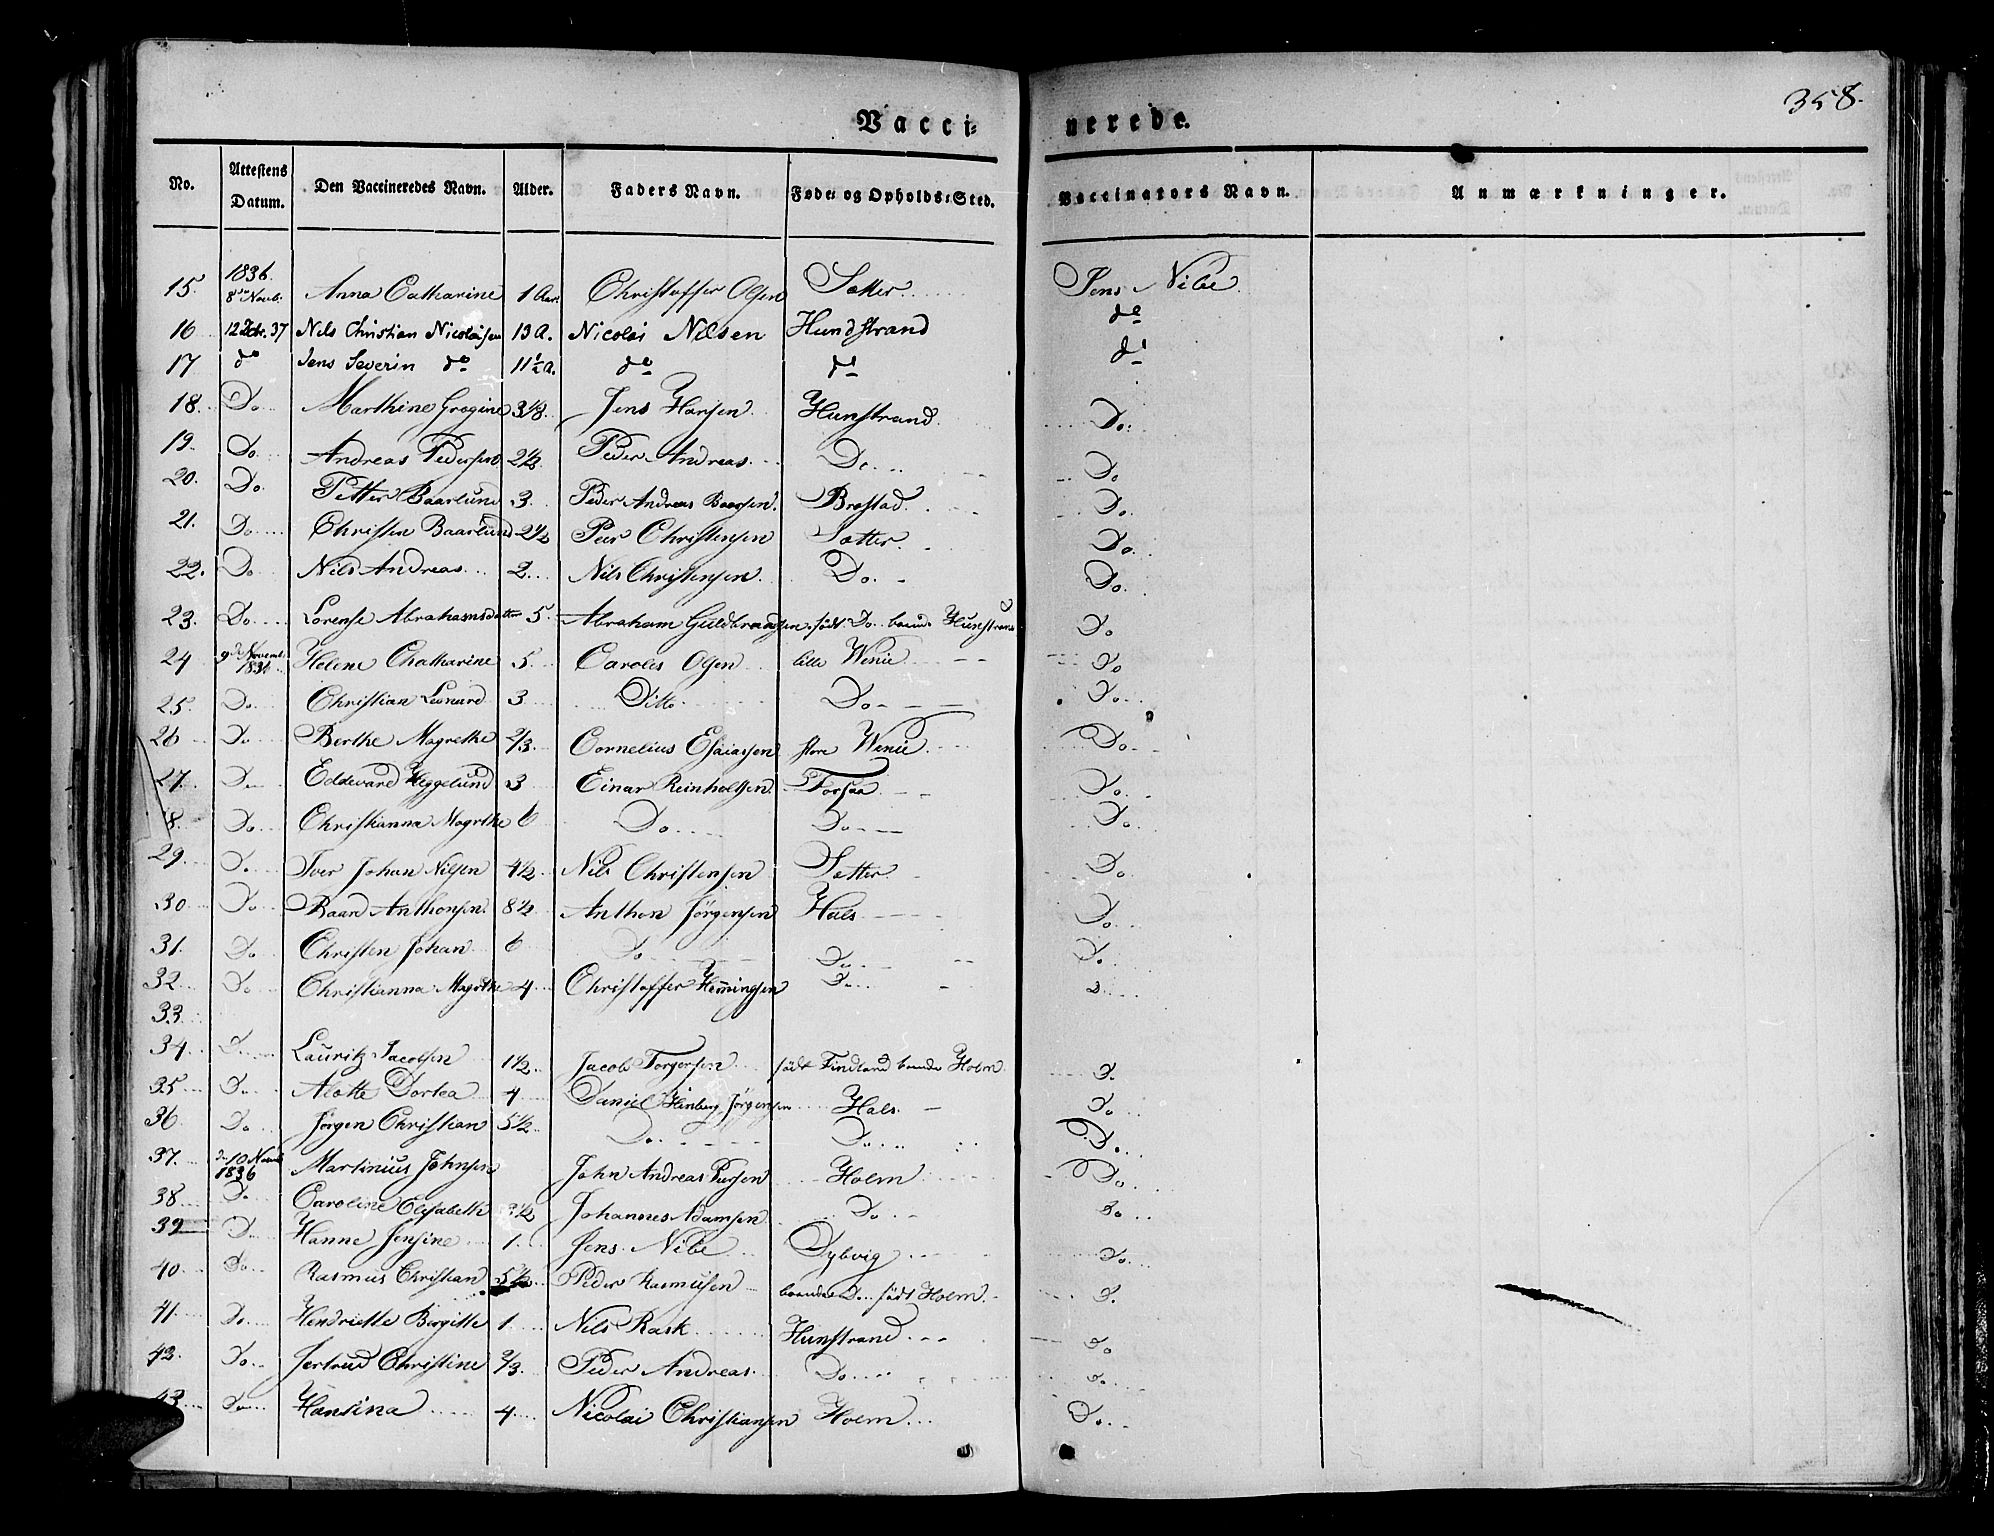 358.
Vacci=nerede.
No. Attestens Datum. Den Vaccineredes Navn. Alder. Faders Navn. Føde= og Opholds=Sted. Vaccinators Navn. Anmærkninger.
15. 1836. 8de Novb: Anna Catharine 1 Aar. Christoffer Olsen Sætter Jens Nibe
16 12 37 Nils Christian Nicolaisen 13 A. Nicolai Nilsen Hundstrand do
17 do Jens Severin do 11½ A. do do do
18. Do Marthine Gregine Jens Hansen Hunstrand. Do.
19. Do Andreas Pedersen 2½ Peder Andreas Do Do
20. Do. Petter Baarlund 3. Peder Andreas Baarsen. Brostad. Do.
21. Do Christen Baarlund 2½ Peer Christensen Sætter. Do.
22. Do Nils Andreas 2. Nils Christensen Do. Do.
23. Do. Lorense Abrahamsdatter 5. Abraham Guldbrandsen. født Do. boende Hunstrand Do
24 9de Novemb. 1836 Helene Chatharine 5. Carolus Olsen lille Wenie Do
25. Do. Christian Leonard 3 Ditto Do Do
26 Do Berthe Magrethe 2/3. Cornelius Esaiassen store Wenie. Do
27. Do Eddevard Heggelund 3 Einar Reinholtsen Forsaa Do
28. Do Christianna Magrthe 6 Do Do Do.
29. Do. Iver Johan Nilsen 4½ Nils Christensen Sætter Do
30 Do Baard Anthonsen. 8½ Anthon Jørgensen Hals Do.
31. Do Christen Johan 6 Do Do Do
32. Do Christianna Magrthe 4 Christoffer Hemingsen Do
33
34 D. Lauritz Jacobsen 1½ Jacob Torgersen født Findland boende Holm D.
35. Do Alotte Dortea 4 Daniel Jørgensen Hals. Do
36 Do Jørgen Christian 5½ Do. Do. Do.
37. 10 Novb 1836 Martinius Johnsen John Andreas Peersen Holm Do
38. Do Caroline Elisabeth 3½ Johannes Adamsen Do. Do
39 Do Hanne Jensine 1. Jens Nibe Dybvig Do.
40. Do. Rasmus Christian 5½ Peder Rasmusen boende Do. født Holm. D.
41. Do. Hendriette Bergitte 1 Nils Rask Hunstrand Do
42. Do Jertrud Christine 2/3. Peder Andreas Do Do
43 Do Hansina 4 Nicolai Christiansen Holm Do.